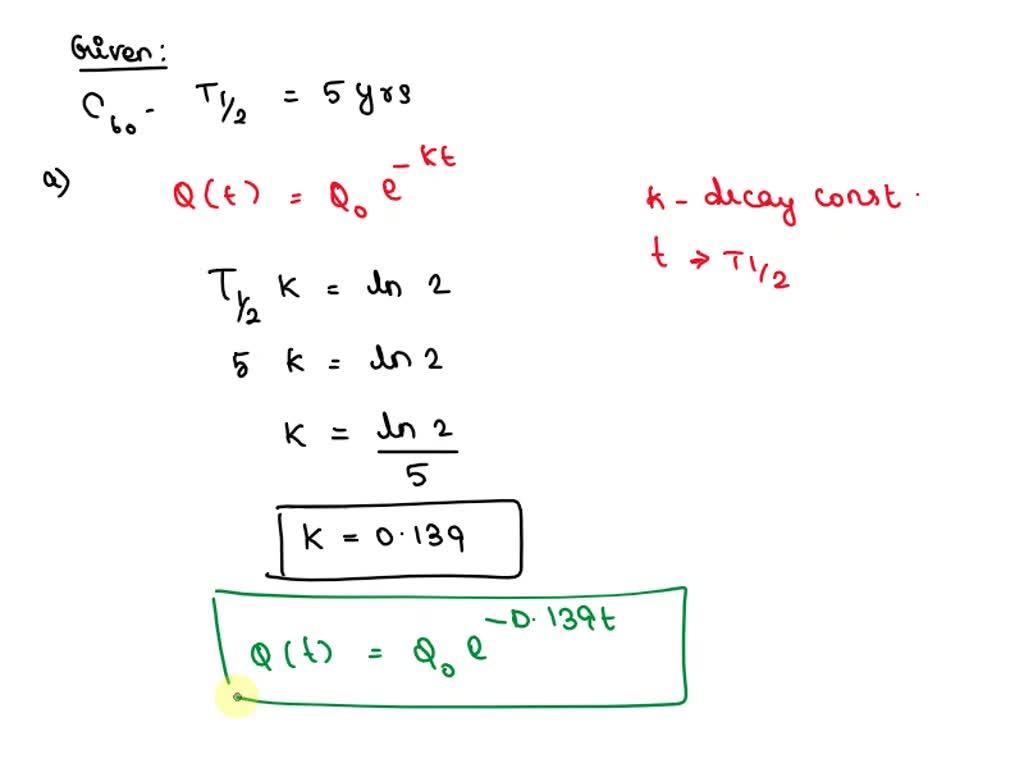 Given:
C60 - T1/2 = 5 yrs
a) Q(t) = Q0 e^-Kt
k - decay const.
t → T1/2
T1/2 K = ln 2
5 K = ln 2
K = ln 2 / 5
K = 0.139
Q(t) = Q0 e^-0.139t